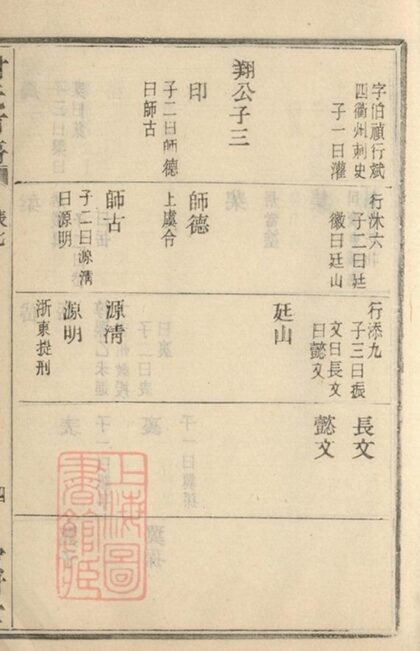 字伯禎行斌
四衢州刺史
子一曰灌
翔公子三
印
子二曰師德
曰師古
行沐六
子二曰廷
徽曰廷山
師德
上虞令
師古
子二曰源淸
曰源明
行添九
子三曰振
文曰長文
曰懿文
廷山
源淸
源明
浙東提刑
長文
懿文
上海圖
書館藏
四